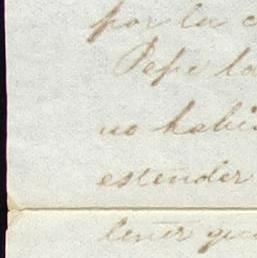 por la c
Pepe la
no habi
estender
tener qu